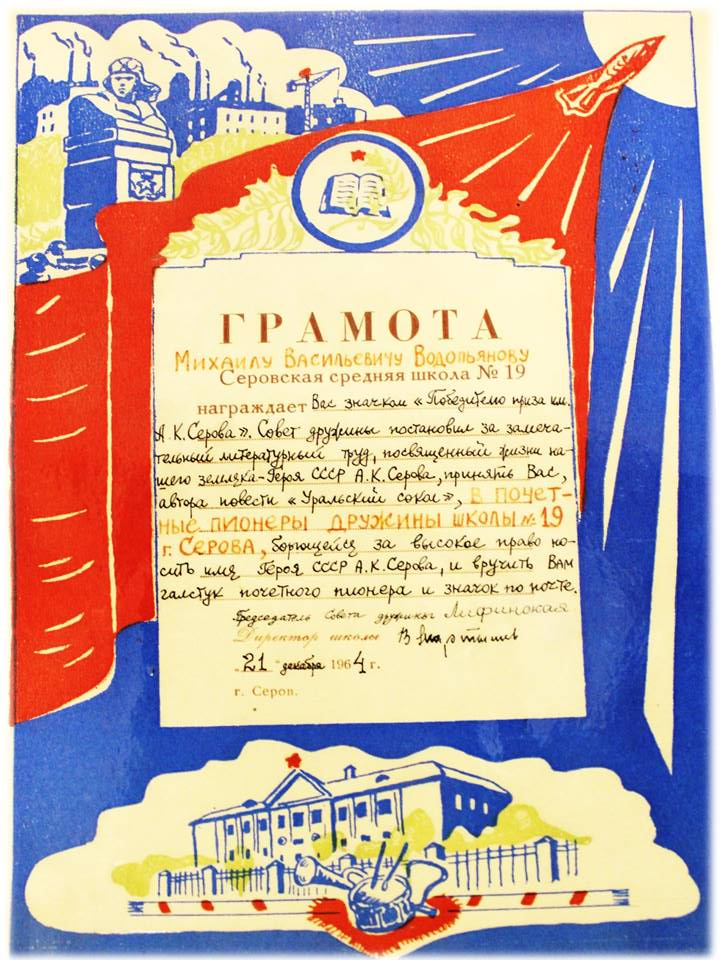 ГРАМОТА
Михаилу Васильевичу Водопьянову
Серовская средняя школа № 19
награждает Вас значком «Победителю приза им.
А.К.Серова». Совет дружины постановил за замеча-
тельный литературный труд, посвященный жизни на-
шего земляка-Героя СССР А.К.Серова, принять Вас,
автора повести «Уральский сокол», в почет-
ные пионеры дружины школы № 19
г. Серова, борющейся за высокое право но-
сить имя Героя СССР А.К.Серова, и вручить Вам
галстук почетного пионера и значок по почте.
Председатель Совета дружины
Директор школы
„21" декабря 1964 г.
г. Серов.